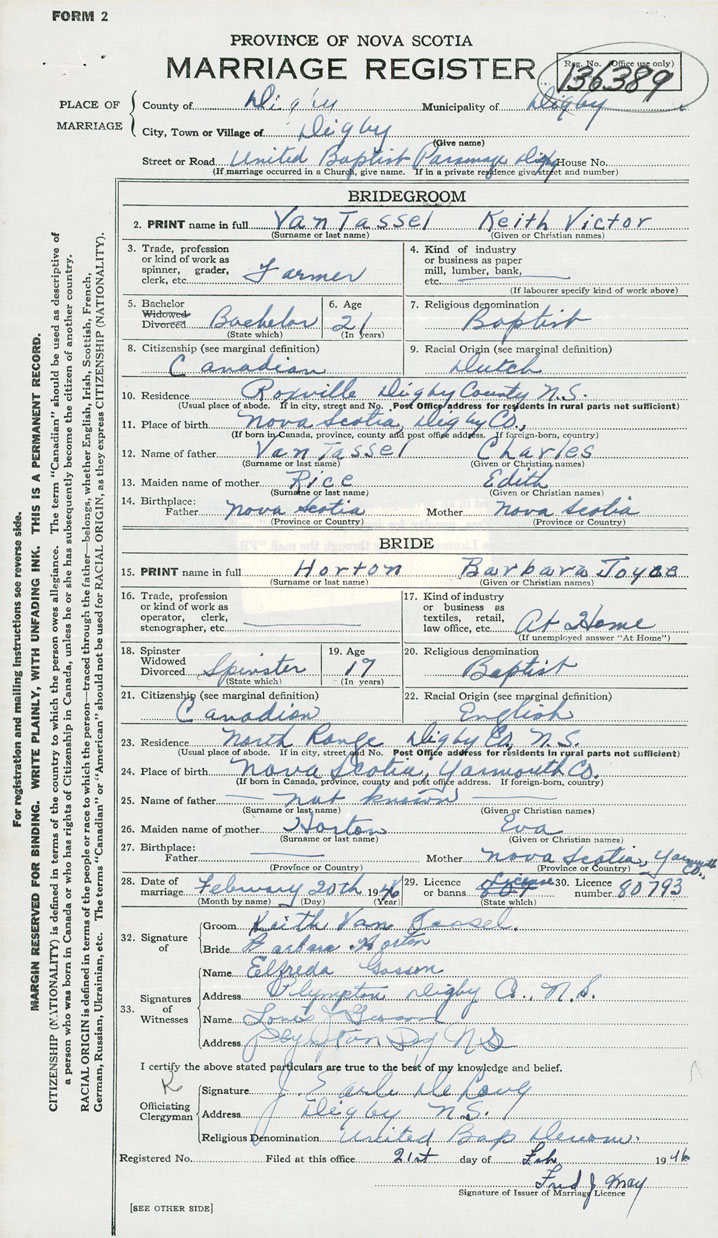 FORM 2
PROVINCE OF NOVA SCOTIA
MARRIAGE REGISTER
Reg. No. (Office use only)
136389
PLACE OF MARRIAGE
County of Digby Municipality of Digby
City, Town or Village of Digby
(Give name)
Street or Road United Baptist Parsonage Digby House No.
(If marriage occurred in a Church, give name. If in a private residence give street and number)
BRIDEGROOM
2. PRINT name in full Van Tassel Keith Victor
(Surname or last name) (Given or Christian names)
3. Trade, profession or kind of work as spinner, grader, clerk, etc. Farmer
4. Kind of industry or business as paper mill, lumber, bank, etc.
(If labourer specify kind of work above)
5. Bachelor Widowed Divorced Bachelor
(State which)
6. Age 21
(In years)
7. Religious denomination Baptist
8. Citizenship (see marginal definition) Canadian
9. Racial Origin (see marginal definition) Dutch
10. Residence Roxville Digby County N.S.
(Usual place of abode. If in city, street and No. Post Office address for residents in rural parts not sufficient)
11. Place of birth Nova Scotia, Digby Co.,
(If born in Canada, province, county and post office address. If foreign-born, country)
12. Name of father Van Tassel Charles
(Surname or last name) (Given or Christian names)
13. Maiden name of mother Rice Edith
(Surname or last name) (Given or Christian names)
14. Birthplace: Father Nova Scotia Mother Nova Scotia
(Province or Country) (Province or Country)
BRIDE
15. PRINT name in full Horton Barbara Joyce
(Surname or last name) (Given or Christian names)
16. Trade, profession or kind of work as operator, clerk, stenographer, etc.
17. Kind of industry or business as textiles, retail, law office, etc. At Home
(If unemployed answer "At Home")
18. Spinster Widowed Divorced Spinster
(State which)
19. Age 17
(In years)
20. Religious denomination Baptist
21. Citizenship (see marginal definition) Canadian
22. Racial Origin (see marginal definition) English
23. Residence North Range Digby Co. N.S.
(Usual place of abode. If in city, street and No. Post Office address for residents in rural parts not sufficient)
24. Place of birth Nova Scotia, Yarmouth Co.
(If born in Canada, province, county and post office address. If foreign-born, country)
25. Name of father not known
(Surname or last name) (Given or Christian names)
26. Maiden name of mother Horton Eva
(Surname or last name) (Given or Christian names)
27. Birthplace: Father Mother Nova Scotia, Yarmouth Co.
(Province or Country) (Province or Country)
28. Date of marriage February 20th 1946
(Month by name) (Day) (Year)
29. Licence or banns License
(State which)
30. Licence number 80793
32. Signature of
Groom Keith Van Tassel.
Bride Barbara Horton
33. Signatures of Witnesses
Name Elfreda
Address Plympton Digby Co., N.S.
Name
Address Plympton Dig N S
I certify the above stated particulars are true to the best of my knowledge and belief.
Officiating Clergyman
Signature J. Earle DeLong
Address Digby N.S.
Religious Denomination United Bap Denom.
Registered No. Filed at this office 21st day of Feb 1946
Fred J May
Signature of Issuer of Marriage Licence
[SEE OTHER SIDE]
For registration and mailing instructions see reverse side.
MARGIN RESERVED FOR BINDING. WRITE PLAINLY, WITH UNFADING INK. THIS IS A PERMANENT RECORD.
CITIZENSHIP (NATIONALITY) is defined in terms of the country to which the person owes allegiance. The term "Canadian" should be used as descriptive of
a person who was born in Canada or who has rights of Citizenship in Canada, unless he or she has subsequently become the citizen of another country.
RACIAL ORIGIN is defined in terms of the people or race to which the person—traced through the father—belongs, whether English, Irish, Scottish, French,
German, Russian, Ukrainian, etc. The terms "Canadian" or "American" should not be used for RACIAL ORIGIN, as they express CITIZENSHIP (NATIONALITY).